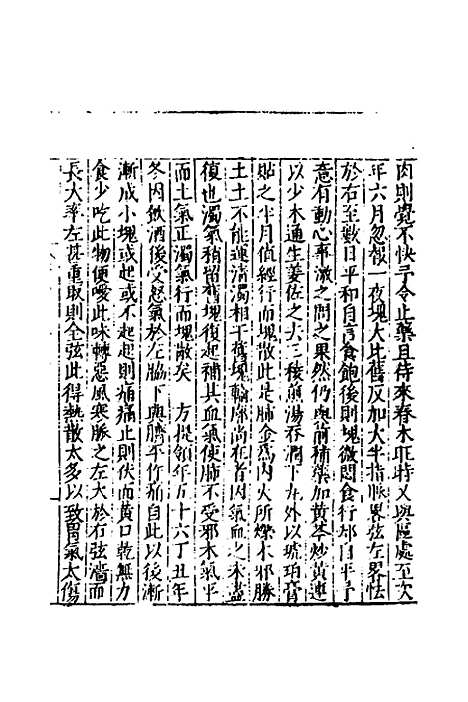 肉則覺不快予令止藥且待來春木旺時又與區處至次
年六月忽報一夜塊大比舊反加大半指脈畧弦左畧怯
於右至數日平和自言食飽後則塊微悶食行却自平予
意有動心事激之問之果然仍與前補藥加黃芩炒黃連
以少木通生薑佐之去三稜煎湯吞潤下丸外以琥珀膏
貼之半月值經行而塊散此是肺金爲內火所爍木邪勝
土土不能運清濁相干舊塊輪廓尚在者因氣血之未盡
復也濁氣稍留舊塊復起補其血氣使肺不受邪木氣平
而土氣正濁氣行而塊散矣　方提領年五十六丁丑年
冬因飲酒後受怒氣於左脇下與臍平作痛自此以後漸
漸成小塊或起或不起起則痛痛止則伏而黃口乾無力
食少吃此物便噯此味轉惡風寒脈之左大於右弦濇而
長大率左甚重取則全弦此得熱散太多以致胃氣太傷